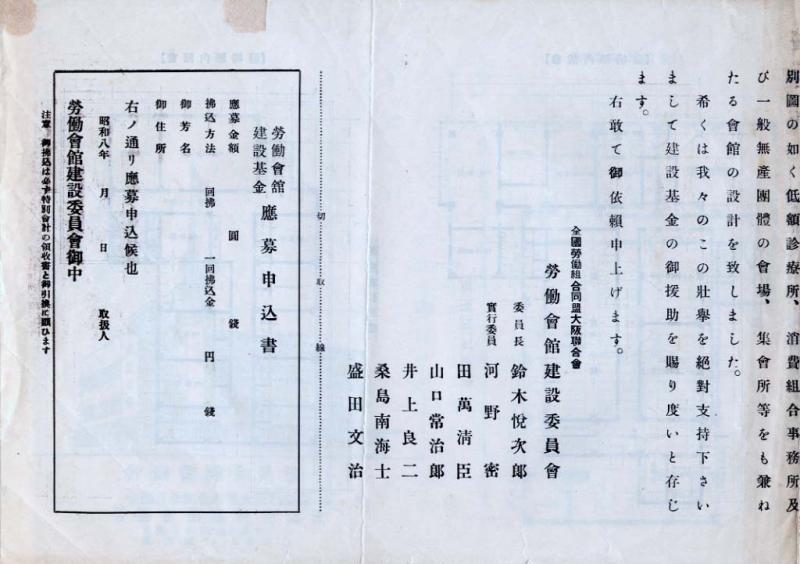 別圖の如く低額診療所、消費組合事務所及
び一般無産團體の會場、集會所等をも兼ね
たる會館の設計を致しました。
希くは我々のこの壯擧を絶對支持下さい
まして建設基金の御援助を賜り度いと存じ
ます。
右敢て御依賴申上げます。
全國勞働組合同盟大阪聯合會
勞働會館建設委員會
委員長 鈴木悅次郎
實行委員 河野密
田萬淸臣
山口常治郎
井上良二
桑島南海士
盛田文治
切取線
勞働會舘建設基金 應募申込書
應募金額 圓 錢
拂込方法 回拂 一回拂込金 円 錢
御芳名
御住所
右ノ通リ應募申込候也
昭和八年 月 日 取扱人
勞働會館建設委員會御中
注意 御拂込は必ず特別會計の領收書と御引換に願ひます